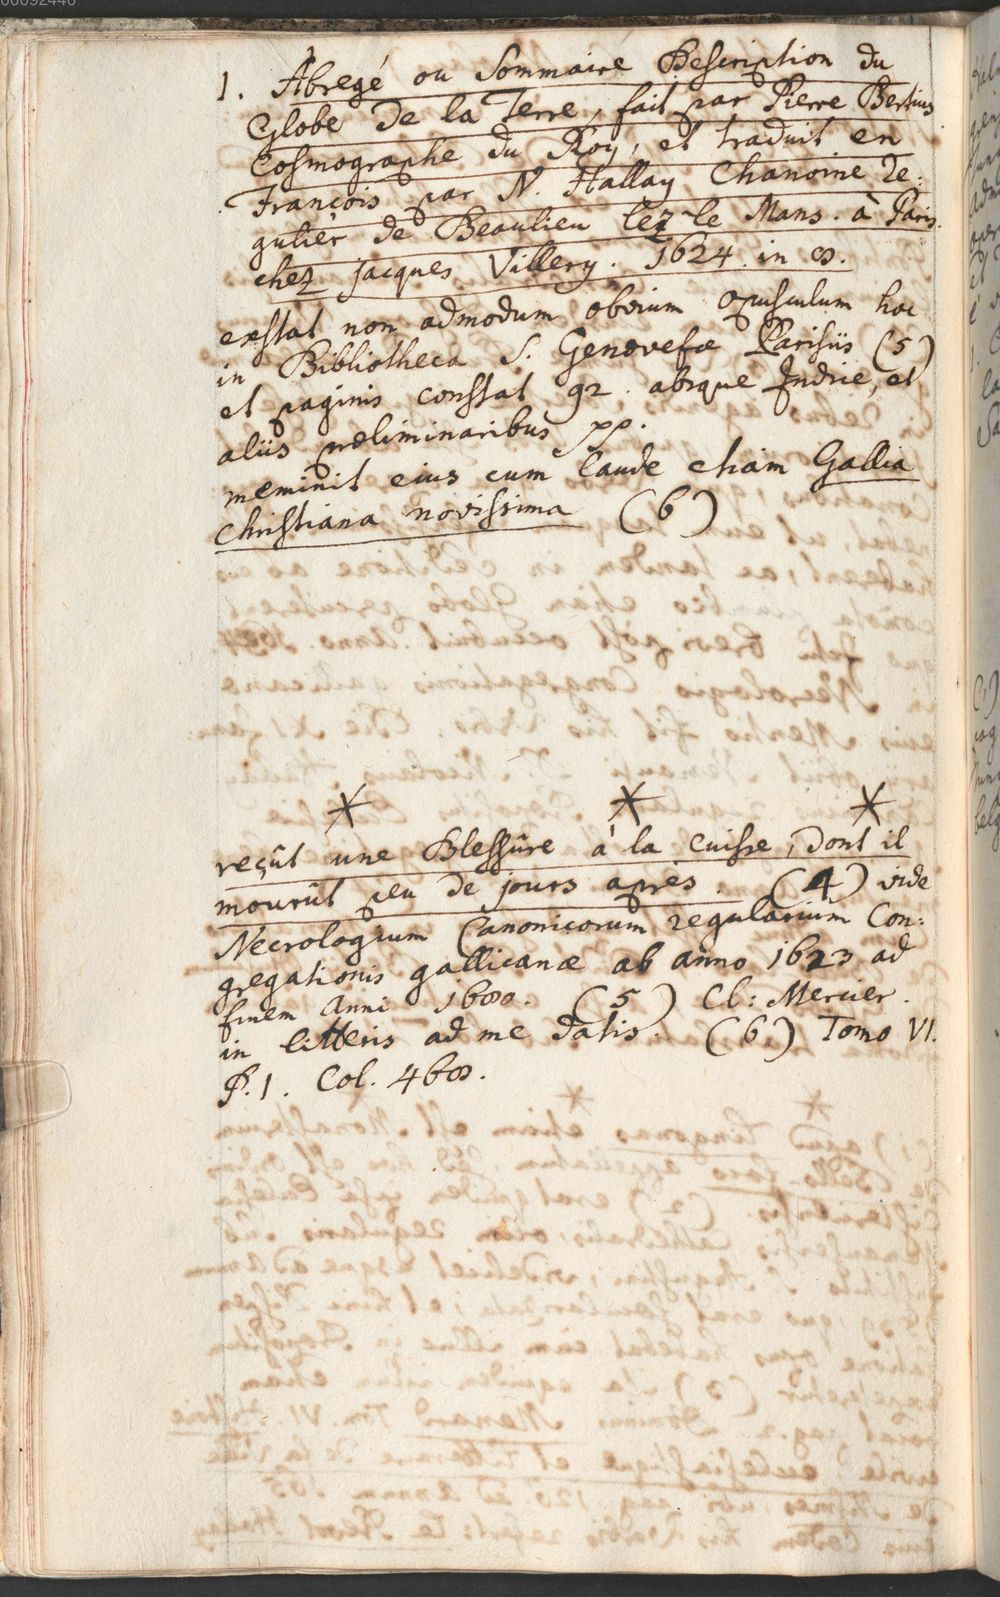 00092440
1. Abregé ou Sommaire Description du
Globe De la Terre, fait par Pierre Bertius
Cosmographe du Roy, et traduit en
François par N. Hallay Chanoine Re:
gulier de Beaulieu lez-le Mans. à Paris
chez Jacques Villery. 1624. in 8.
exstat non admodum obvium opusculum hoc
in Bibliotheca S. Genovefæ Parisiis (5)
et paginis constat 92. absque Indice, et
aliis præliminaribus pp.
meminit eius cum laude etiam Gallia
Christiana novissima (6)
* * *
reçût une Blessûre à la cuisse, dont il
mourût peu de jours après. (4) vide
Necrologium Canonicorum regularium Con:
gregationis gallicanæ ab anno 1623 ad
finem Anni 1680. (5) Cl: Mercier.
in litteris ad me datis. (6) Tomo VI.
P. 1. Col. 468.